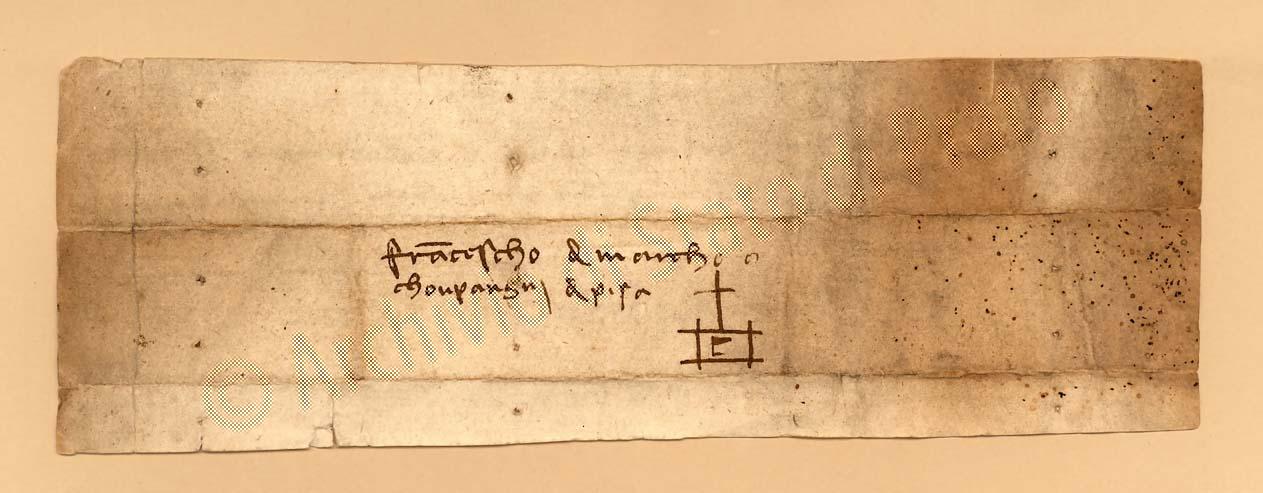 francescho di marcho e
chonpangni di pisa
© Archivio di Stato di Prato